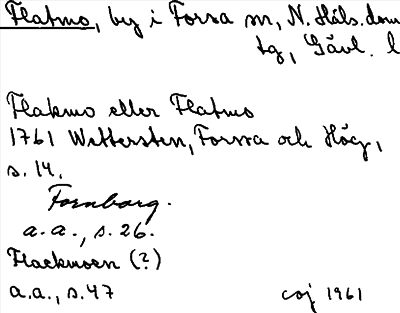 Flatmo, by i Forsa sn, N. Häls. dom
tg, Gävl. l
Flakmo eller Flatmo
1761 Wettersten, Forssa och Hög,
s. 14.
Fornborg.
a. a., s. 26.
Flackmoen (?)
a.a., s. 47
coj 1961